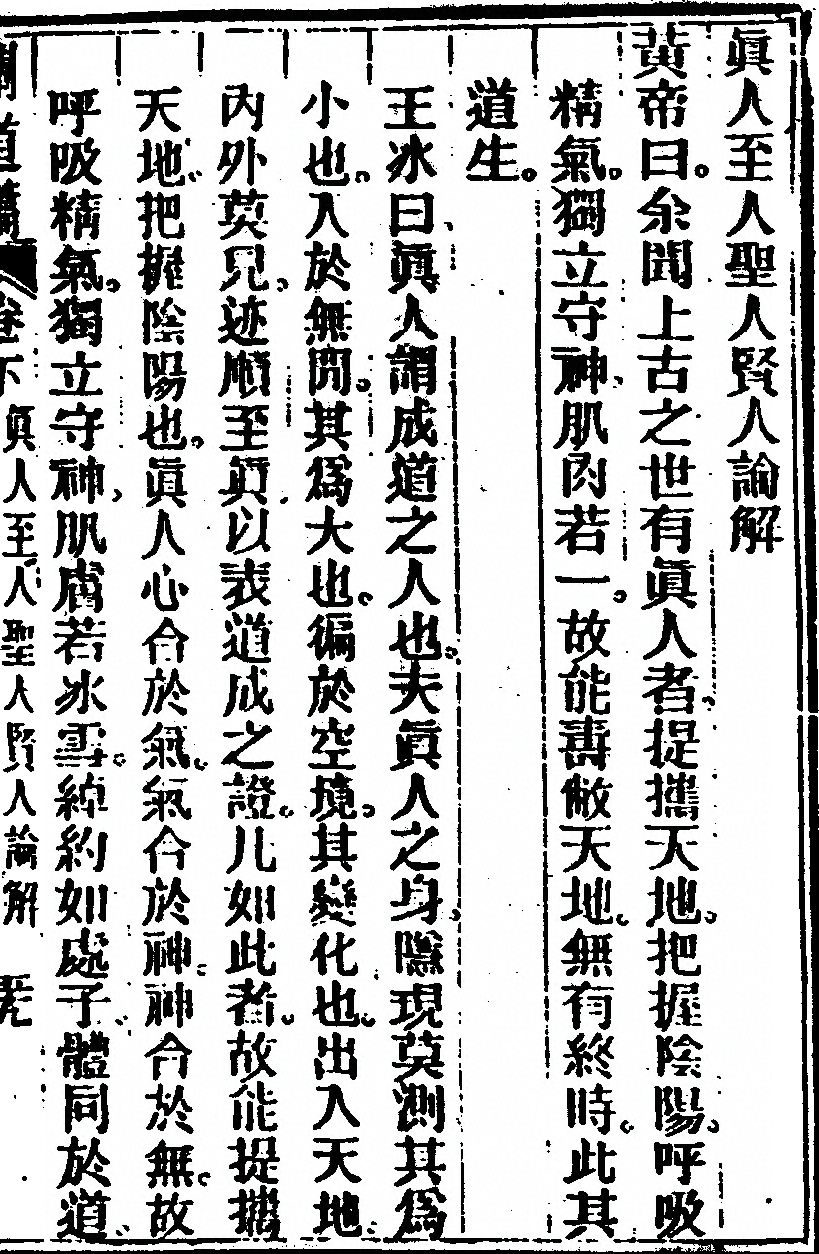 眞人至人聖人賢人論解
黃帝曰。余聞上古之世有眞人者。提攜天地。把握陰陽。呼吸
精氣。獨立守神、肌肉若一。故能壽敝天地。無有終時。此其
道生。
王冰曰、眞人謂成道之人也。夫眞人之身、隱現莫測其爲
小也。入於無間。其爲大也。徧於空境。其變化也。出入天地
內外莫見。迹順至眞以表道成之證。凡如此者。故能提攜
天地。把握陰陽也。眞人心合於氣。氣合於神。神合於無。故
呼吸精氣。獨立守神、肌膚若冰雪。綽約如處子。體同於道、
卷下 眞人至人聖人賢人論解